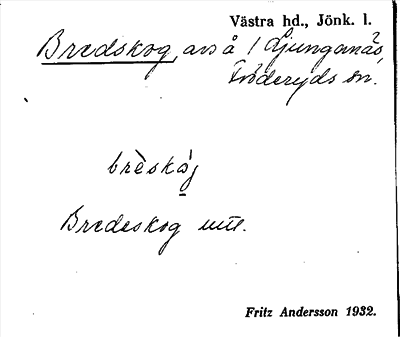 Västra hd., Jönk. l.
Bredskog, avs å 1 Ljunganäs,
Inderyds sn.
brèskóg
Bredeskog utt.
Fritz Andersson 1932.